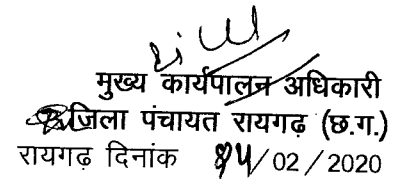 मुख्य कार्यपालन अधिकारी
जिला पंचायत रायगढ़ (छ.ग.)
रायगढ़ दिनांक /02/2020